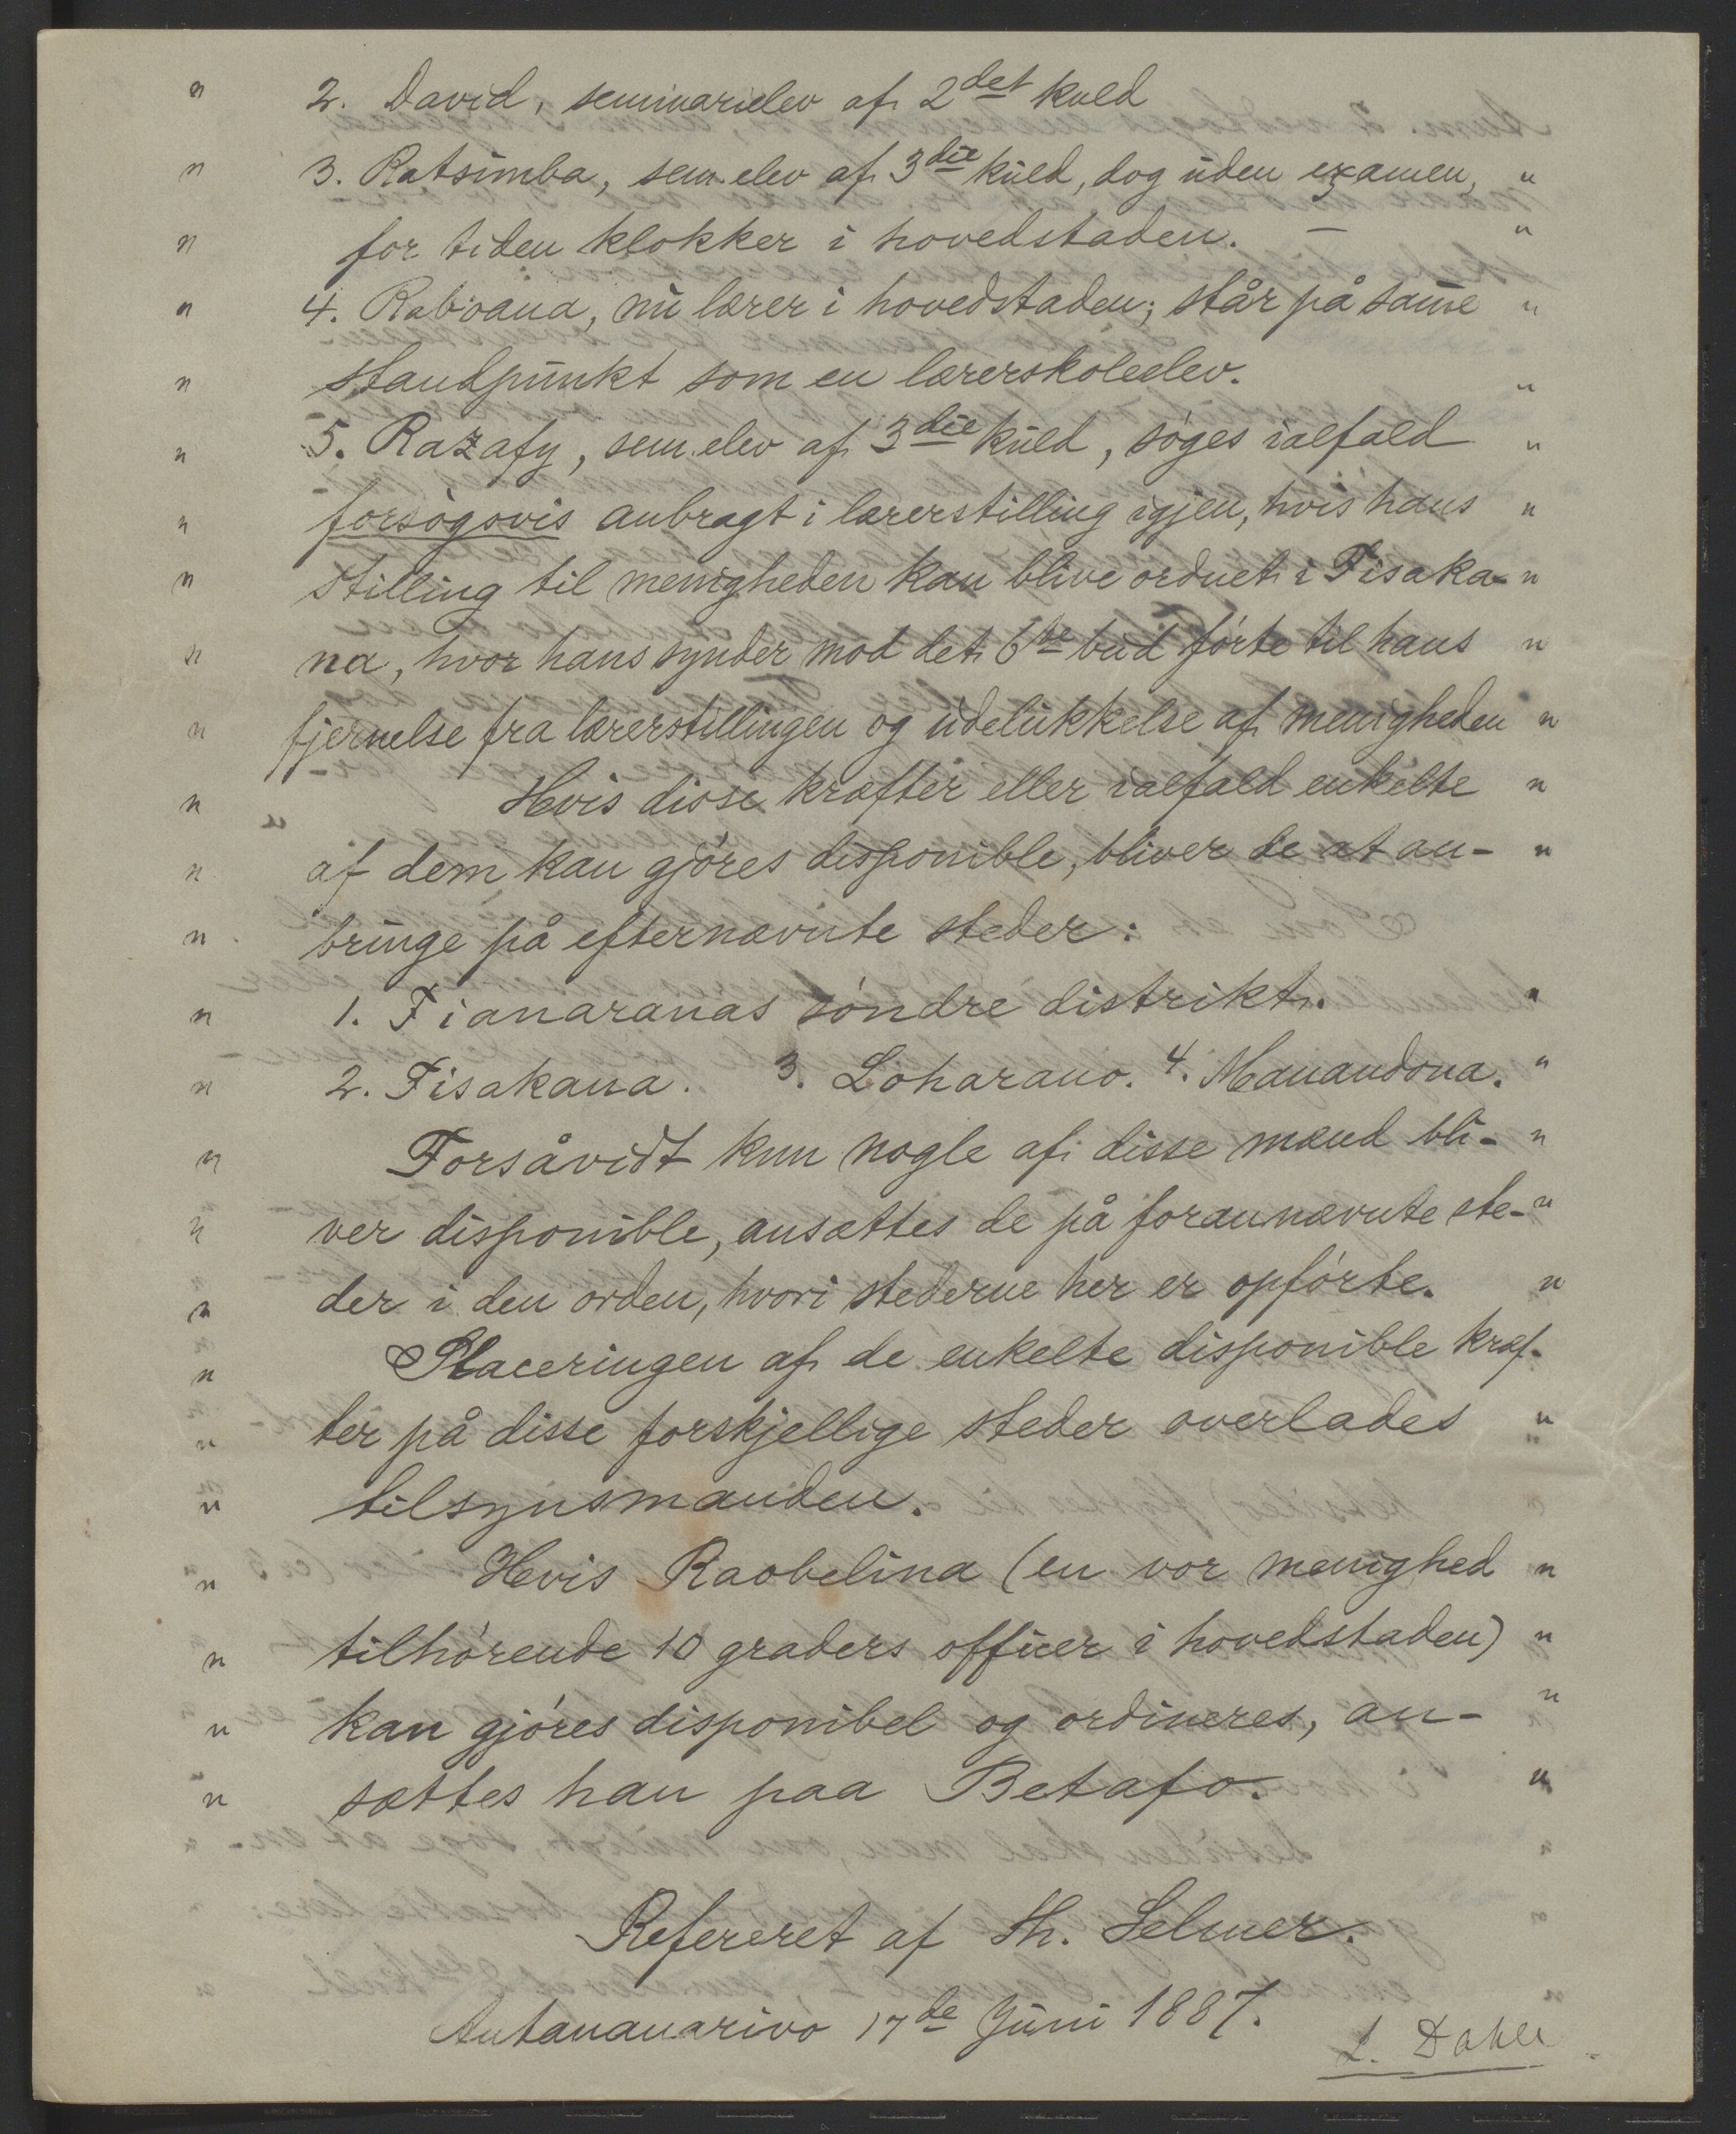 " 2. David, seminarielev af 2det kuld
" 3. Ratsimba, sem. elev af 3die kuld, dog uden examen, "
" for tiden klokker i hovedstaden. — "
" 4. Raboana, nu lærer i hovedstaden; står på same "
" standpunkt som en lærerskoleelev. "
" 5. Razafy, sem. elev af 3die kuld, søges ialfald "
" forsøgsvis anbragt i lærerstilling igjen, hvis hans "
" stilling til menigheden kan blive ordnet i Fisaka- "
" na, hvor hans synder mod det 6te bud førte til hans "
" fjernelse fra lærerstillingen og udelukkelse af menigheden "
" Hvis disse kræfter eller ialfald enkelte "
" af dem kan gjøres disponible, bliver de at an- "
" bringe på efternævnte steder:
" 1. Fianaranas søndre distrikt. "
" 2. Fisakana. 3. Loharano. 4. Manandona. "
" Forsåvidt kun nogle af disse mænd bli- "
" ver disponible, ansættes de på forannævnte ste- "
" der i den orden, hvori stederne her er opførte. "
" Placeringen af de enkelte disponible kræf-
" ter på disse forskjellige steder overlades "
" tilsynsmanden.
" Hvis Raobelina (en vor menighed "
" tilhørende 10 graders officer i hovedstaden) "
" kan gjøres disponibel og ordineres, an- "
" sættes han paa Betafo. "
Refereret af Th. Selmer.
Antananarivo 17de Juni 1887.
L. Dahle